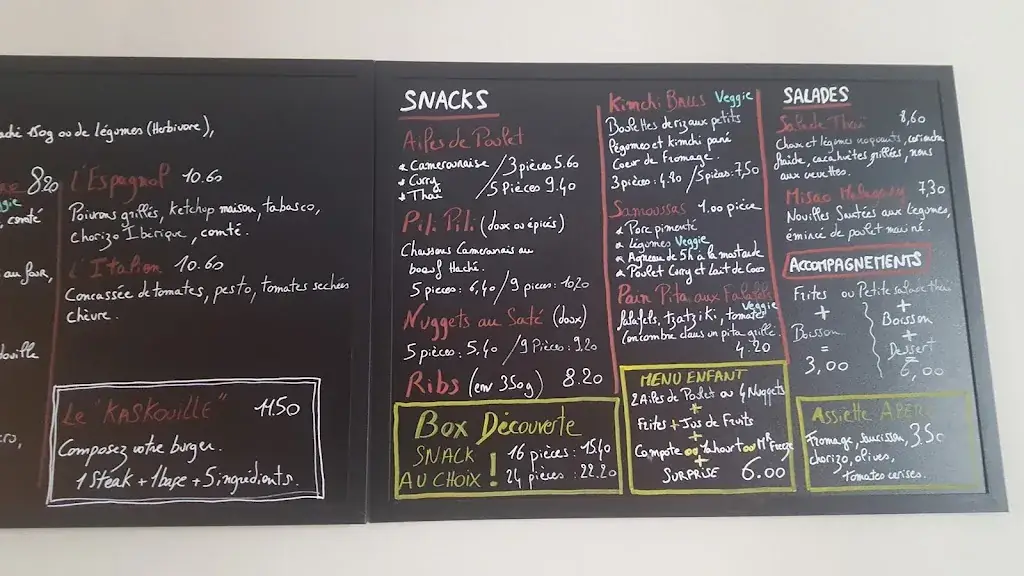 aché 150g ou de légumes (Herbivore),
8.20
, comté
au four,
L'Espagnol 10.60
Poivrons grillés, ketchup maison, tabasco,
chorizo Ibérique, comté.
L'Italien 10.60
Concassée de tomates, pesto, tomates sechées
chèvre.
Le "KASKOUILLE" 11.50
Composez votre burger.
1 Steak + 1 base + 5 ingrédients.
SNACKS
Ailes de Poulet
Camerounaise / 3 pièces 5.60
Curry / 5 Pièces 9.40
Thaï
Pili Pili (doux ou épicés)
Chaussons Camerounais au
boeuf Haché.
5 pièces : 6,40 / 9 pièces : 10,20
Nuggets au Saté (doux)
5 pièces : 5,40 / 9 Pièces : 9.20
Ribs (env 350g) 8.20
Box Découverte
SNACK 16 pièces : 15.40
AU CHOIX ! 24 pièces : 22.20
Kimchi Balls Veggie
Boulettes de riz aux petits
légumes et kimchi pané
Coeur de Fromage.
3 pièces : 4.80 / 5 pièces : 7,50
Samoussas 1.00 pièce
Porc pimenté
légumes Veggie
Agneau de 5h à la moutarde
Poulet Curry et Lait de Coco
Pain Pita aux Falafels
Veggie
falafels, tzatziki, tomates
concombre dans un pita grillé.
4.20
MENU ENFANT
2 Ailes de Poulet ou 4 Nuggets
+
Frites + Jus de Fruits
+
Compote ou Yahourt ou Mr Freeze
+
SURPRISE 6.00
SALADES
Salade Thaï 8,60
Choux et légumes croquants, coriandre
fraîde, cacahuètes grillées, nems
aux crevettes.
Misao 7,30
Nouilles Sautées aux légumes,
émincé de poulet mariné.
ACCOMPAGNEMENTS
Frites ou Petite salade thaï
+ +
Boisson Boisson
= +
3,00 Dessert
=
6,00
Assiette APERO
Fromage, saucisson, 3.50
chorizo, olives,
tomates cerises.